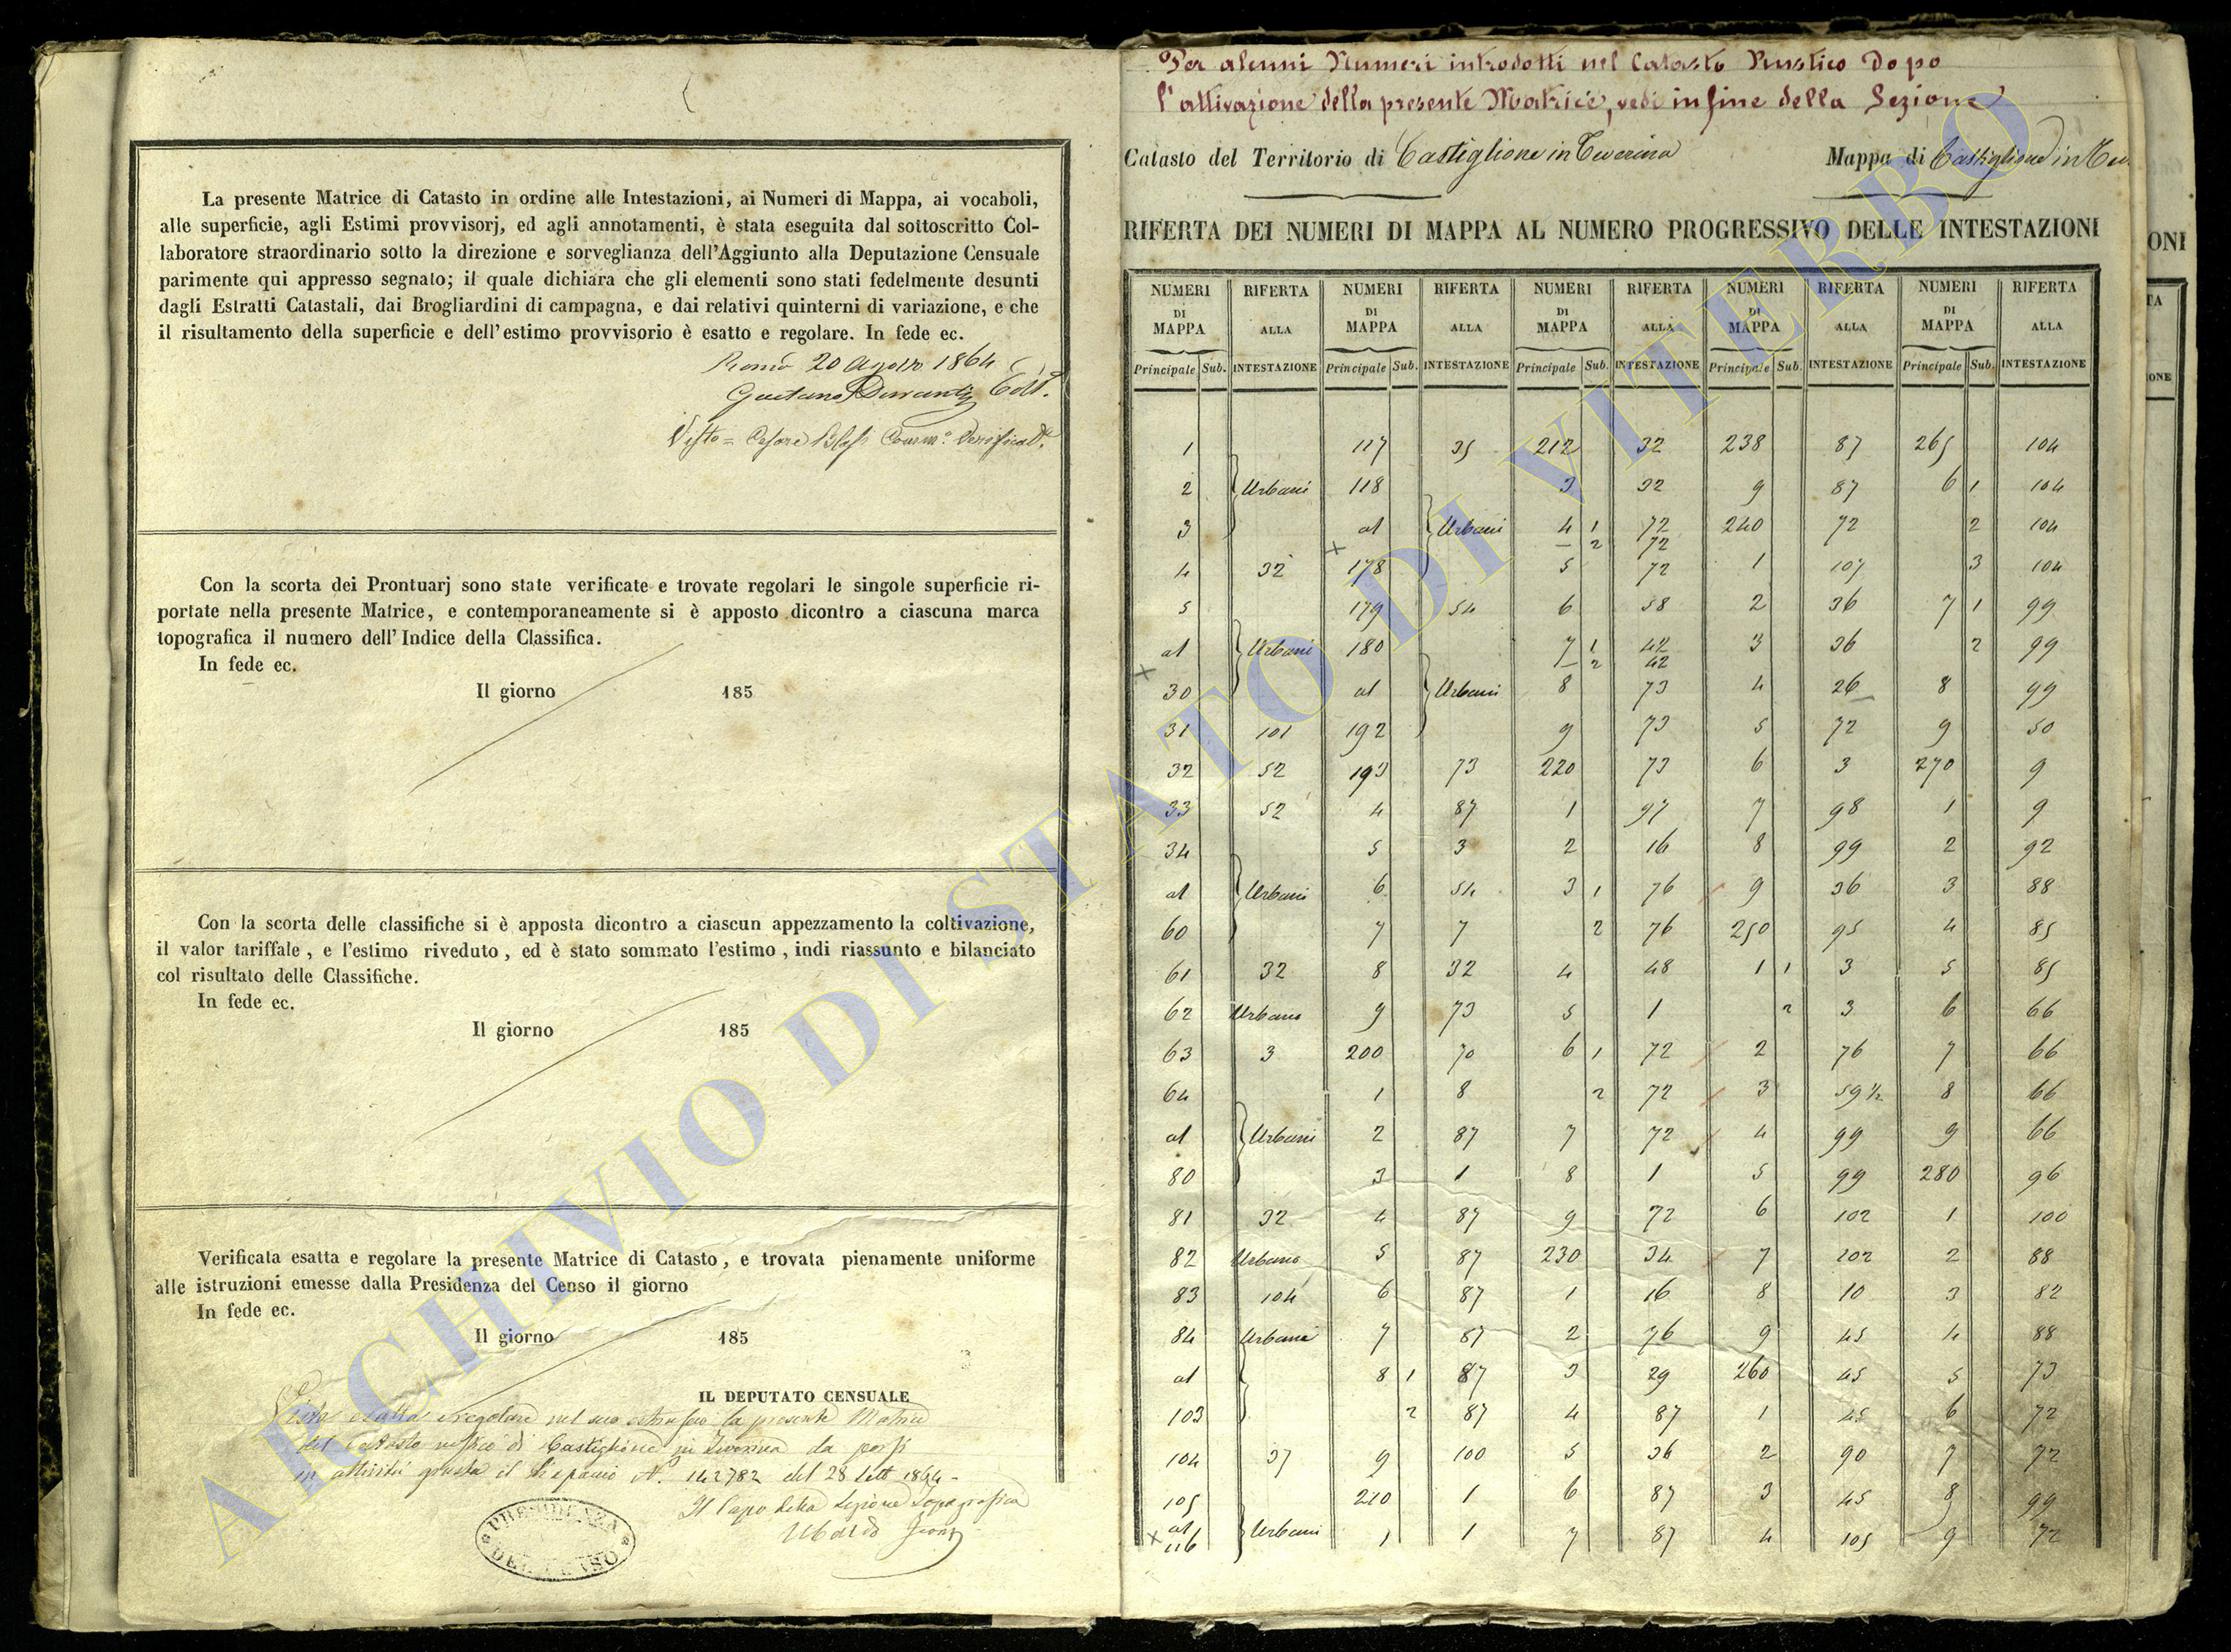 La presente Matrice di Catasto in ordine alle Intestazioni, ai Numeri di Mappa, ai vocaboli,
alle superficie, agli Estimi provvisorj, ed agli annotamenti, è stata eseguita dal sottoscritto Col-
laboratore straordinario sotto la direzione e sorveglianza dell'Aggiunto alla Deputazione Censuale
parimente qui appresso segnato; il quale dichiara che gli elementi sono stati fedelmente desunti
dagli Estratti Catastali, dai Brogliardini di campagna, e dai relativi quinterni di variazione, e che
il risultamento della superficie e dell'estimo provvisorio è esatto e regolare. In fede ec.
Roma 20 Agosto 1864
Gaetano
Visto = Cesare
Con la scorta dei Prontuarj sono state verificate e trovate regolari le singole superficie ri-
portate nella presente Matrice, e contemporaneamente si è apposto dicontro a ciascuna marca
topografica il numero dell'Indice della Classifica.
In fede ec.
Il giorno 185
Con la scorta delle classifiche si è apposta dicontro a ciascun appezzamento la coltivazione,
il valor tariffale, e l'estimo riveduto, ed è stato sommato l'estimo, indi riassunto e bilanciato
col risultato delle Classifiche.
In fede ec.
Il giorno 185
Verificata esatta e regolare la presente Matrice di Catasto, e trovata pienamente uniforme
alle istruzioni emesse dalla Presidenza del Censo il giorno
In fede ec.
Il giorno 185
IL DEPUTATO CENSUALE
esatta e regolare nel suo la presente Matrice
del Catasto rustico di Castiglione in Teverina da porsi
in attività giusta il Dispaccio N.° 142782 del 28 Sett 1864 -
Il Capo della Sezione Topografica
Ubaldo
PRESIDENZA
DEL CENSO
Per alcuni Numeri introdotti nel Catasto Rustico dopo
l'attivazione della presente Matrice, vedi in fine della Sezione
Catasto del Territorio di Castiglione in Teverina Mappa di Castiglione in Tev.
RIFERTA DEI NUMERI DI MAPPA AL NUMERO PROGRESSIVO DELLE INTESTAZIONI
NUMERI RIFERTA NUMERI RIFERTA NUMERI RIFERTA NUMERI RIFERTA NUMERI RIFERTA
DI MAPPA ALLA DI MAPPA ALLA DI MAPPA ALLA DI MAPPA ALLA DI MAPPA ALLA
Principale Sub. INTESTAZIONE Principale Sub. INTESTAZIONE Principale Sub. INTESTAZIONE Principale Sub. INTESTAZIONE Principale Sub. INTESTAZIONE
1 117 35 212 32 238 87 265 104
2 Urbani 118 3 32 9 87 6 1 104
3 al Urbani 4 1 72 240 72 2 104
— 2 72
4 32 178 5 72 1 107 3 104
5 179 54 6 58 2 36 7 1 99
al Urbani 180 7 1 42 3 36 2 99
— 2 42
30 al Urbani 8 73 4 26 8 99
31 101 192 9 73 5 72 9 50
32 52 193 73 220 73 6 3 270 9
33 52 4 87 1 97 7 98 1 9
34 5 3 2 16 8 99 2 92
al Urbani 6 54 3 1 76 9 36 3 88
60 7 7 2 76 250 95 4 85
61 32 8 32 4 48 1 1 3 5 85
62 Urbano 9 73 5 1 2 3 6 66
63 3 200 70 6 1 72 2 76 7 66
64 1 8 2 72 3 59 1/2 8 66
al Urbani 2 87 7 72 4 99 9 66
80 3 1 8 1 5 99 280 96
81 32 4 87 9 72 6 102 1 100
82 Urbano 5 87 230 34 7 102 2 88
83 104 6 87 1 16 8 10 3 82
84 Urbani 7 87 2 76 9 45 4 88
al 8 1 87 3 29 260 45 5 73
103 2 87 4 87 1 45 6 72
104 37 9 100 5 36 2 90 7 72
105 210 1 6 87 3 45 8 99
al
116 Urbani 1 1 7 87 4 105 9 72
ONI
TA
ONE
ARCHIVIO DI STATO DI VITERBO